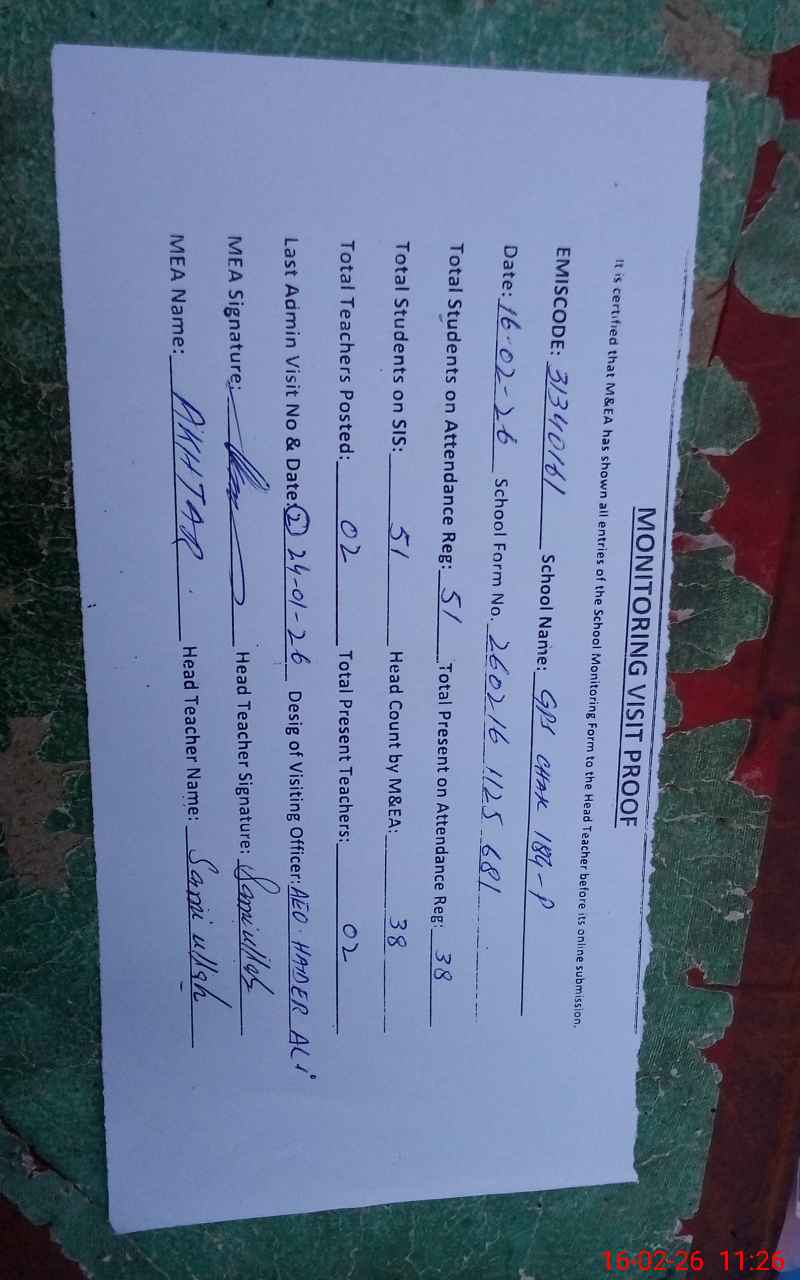 MONITORING VISIT PROOF
It is certified that M&EA has shown all entries of the School Monitoring Form to the Head Teacher before its online submission.
EMISCODE: 31340161 School Name: GPS CHAK 189-P
Date: 16-02-26 School Form No. 260216 1125 681
Total Students on Attendance Reg: 51 Total Present on Attendance Reg: 38
Total Students on SIS: 51 Head Count by M&EA: 38
Total Teachers Posted: 02 Total Present Teachers: 02
Last Admin Visit No & Date: 2 24-01-26 Desig of Visiting Officer: AEO. HAIDER ALI
MEA Signature: Head Teacher Signature: Samiullah
MEA Name: AKHTAR Head Teacher Name: Sami ullah
16-02-26 11:26